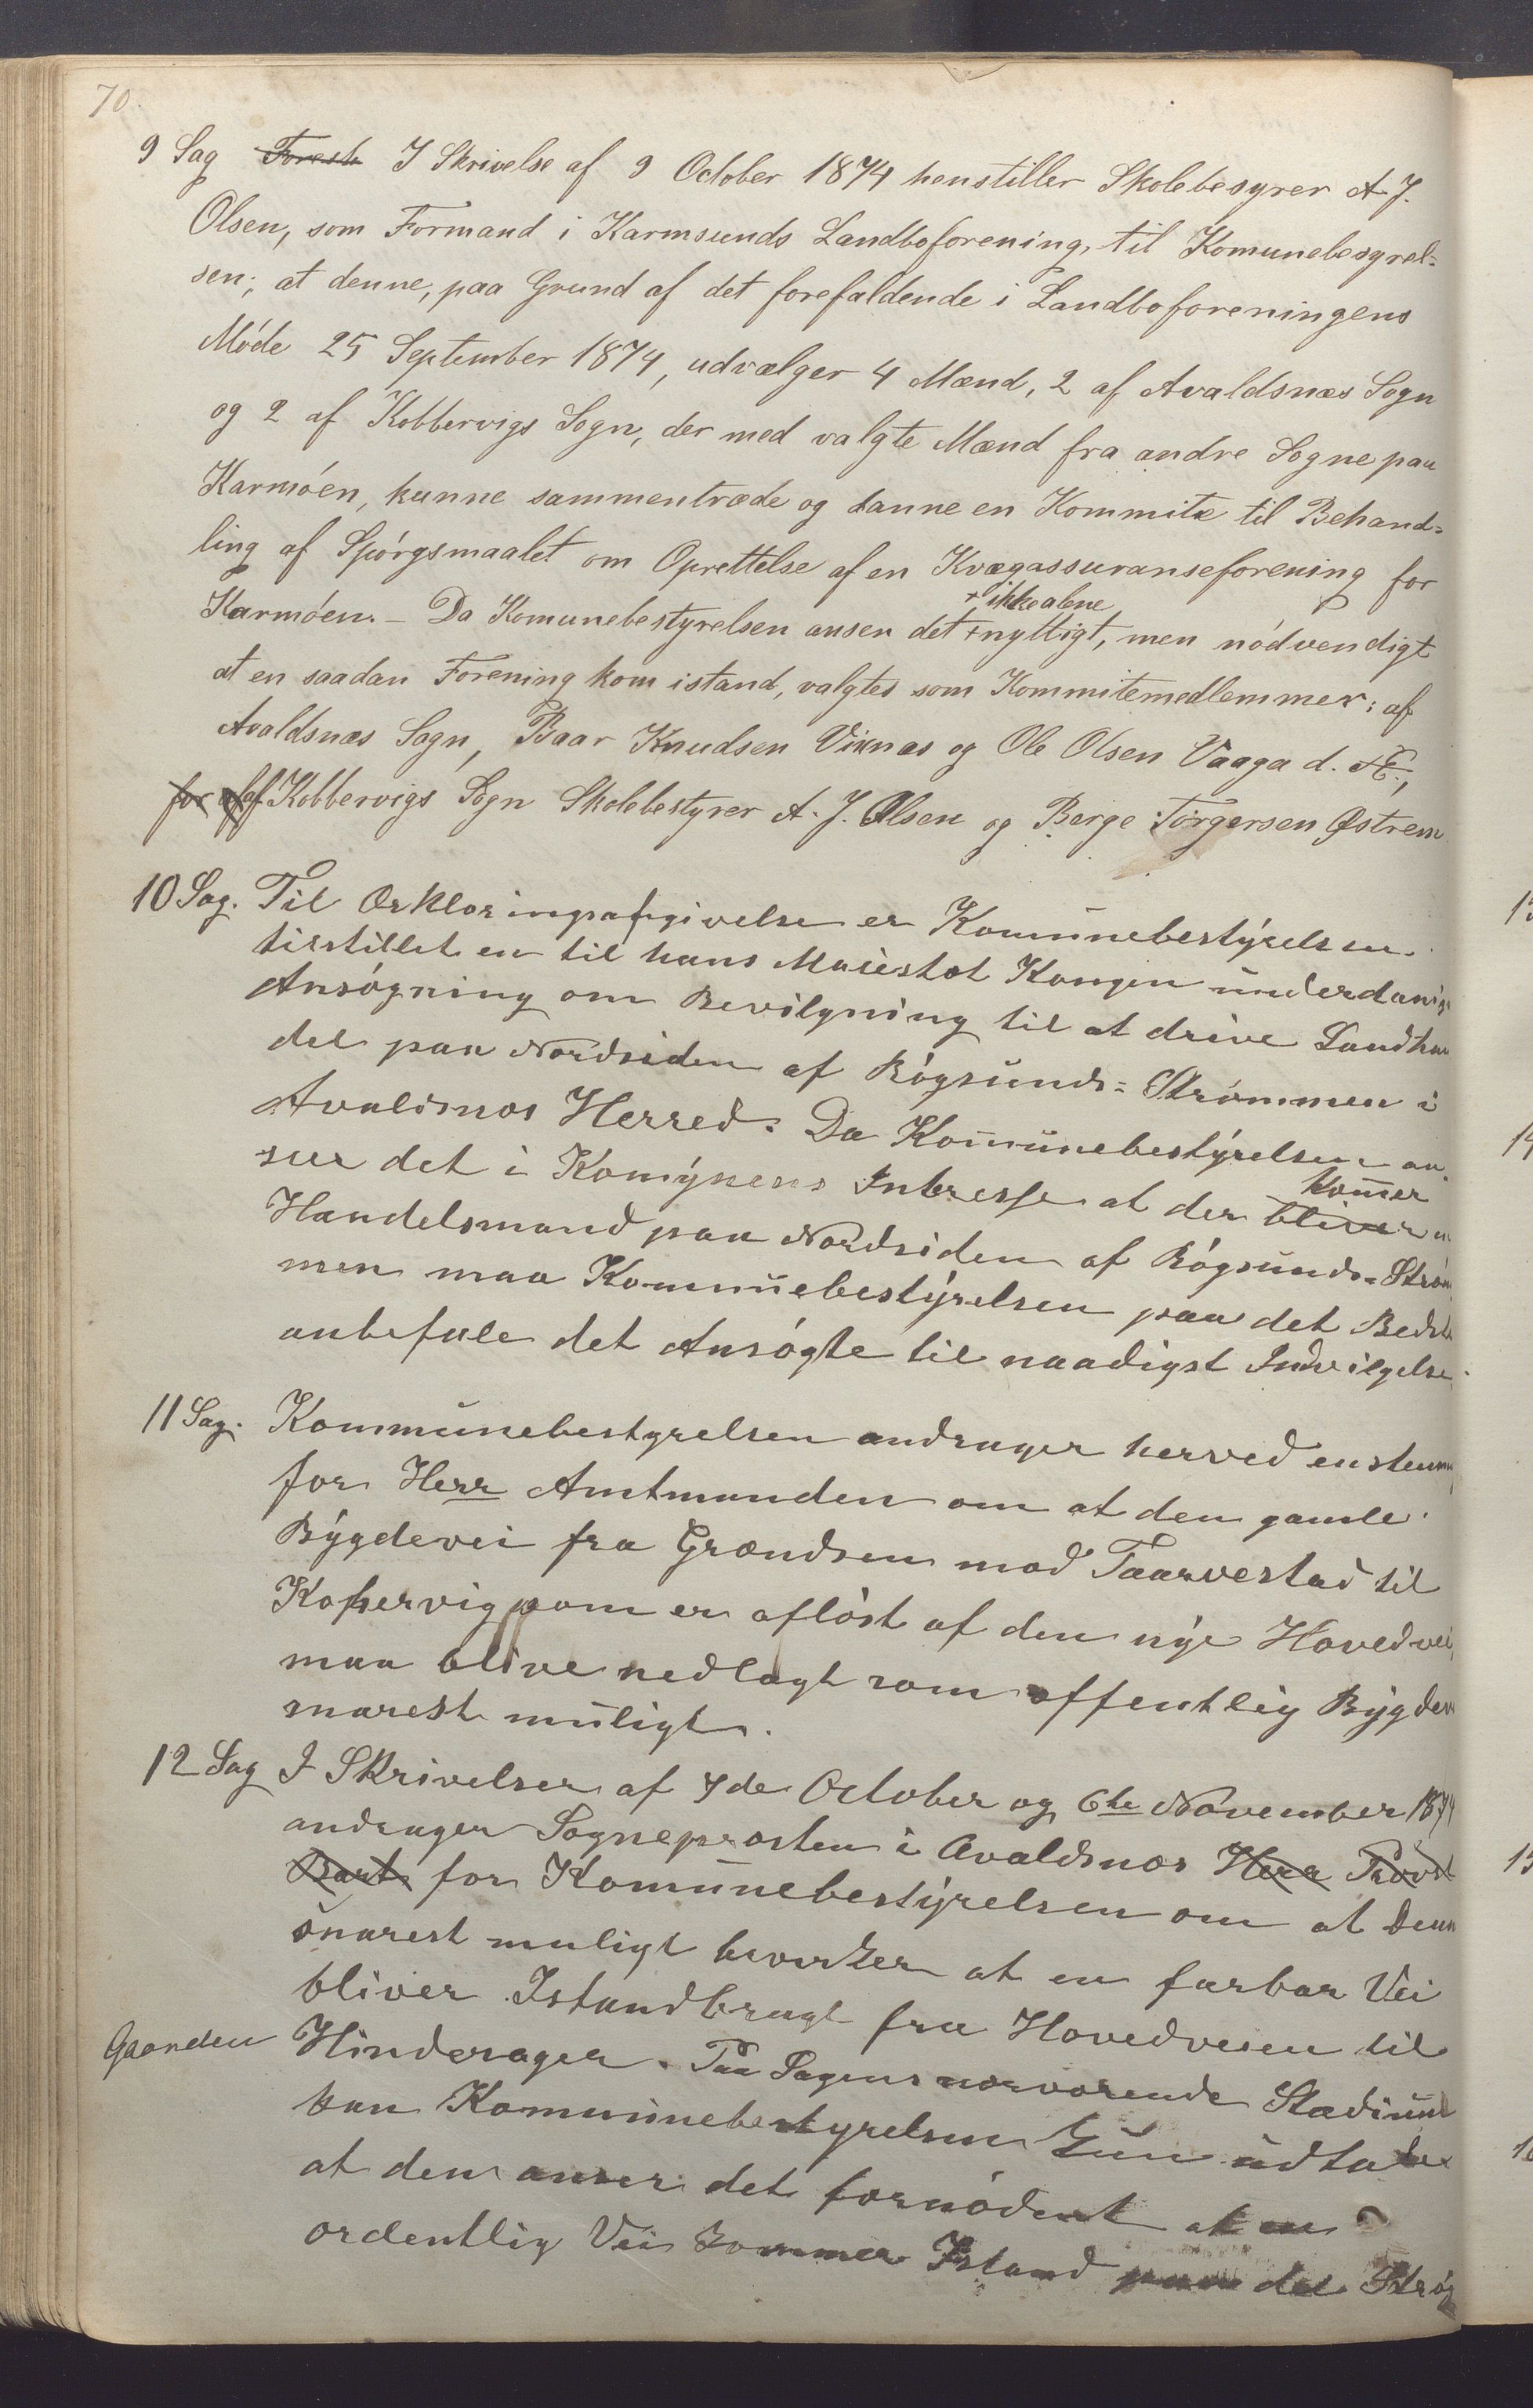 70.
9 Sag Foresh I Skrivelse af 9 October 1874 henstiller Skolebesyrer A. J.
Olsen, som Formand i Karmsunds Landboforening, til Komunebesyrel=
sen; at denne, paa Grund af det forefaldende i Landboforeningens
Möde 25 September 1874, udvælger 4 Mænd, 2 af Avaldsnæs Sogn
og 2 af Kobbervigs Sogn, der med valgte Mænd fra andre Sogne paa
Karmöen, kunne sammentræde og danne en Kommite til Behand=
ling af Spörgsmaalet om Oprettelse af en Kvægassuranseforening for
+ ikke alene
Karmöen. – Da Komunebestyrelsen anser det + nyttigt, men nödvendigt
at en saadan Forening kom istand, valgtes som Kommitemedlemmer: af
Avaldsnæs Sogn, Baar Knudsen Viknæs og Ole Olsen Vaaga d. Æ.,
for af af Kobbervigs Sogn Skolebestyrer A. J. Olsen og Berge Torgersen Østrem
10 Sag. Til Erklæringsafgivelse er Komunebestyrelsen
tilstillet en til hans Maiestæt Kongen underdanig
Ansögning om Bevilgning til at drive Landhan
del paa Nordsiden af Bögsunds= Strømmen i
Avaldsnæs Herred. Da Komunebestyrelsen an
ser det i Komynens Interesse at der bliver en
komer
Handelsmand paa Nordsiden af Bögsunds= Ström
men maa Kommunebestyrelsen paa det Bedste
anbefale det Ansögte til naadigst Indvilgelse.
11 Sag. Kommunebestyrelsen andrager herved enstemmig
for Herr Amtmanden om at den gamle
Bygdevei fra Grændsen mod Taarvestad til
Kopervig som er aflöst af den nye Hovedvei,
maa blive nedlagt som offentlig Bygdevei
snarest muligt.
12 Sag I Skrivelser af 7de October og 6te November 1874
andrager Sognepræsten i Avaldsnæs Herr Provst
for Komunebestyrelsen om at Denne
snarest muligt bevirker at en farbar Vei
bliver Istandbragt fra Hovedveien til
Gaarden Hinderager. Paa Sagens nærværende Stadium
kan Kommunebestyrelsen kun udtale
at den anser det fornödent at en
ordentlig Vei kommer Istand paa det Strøg